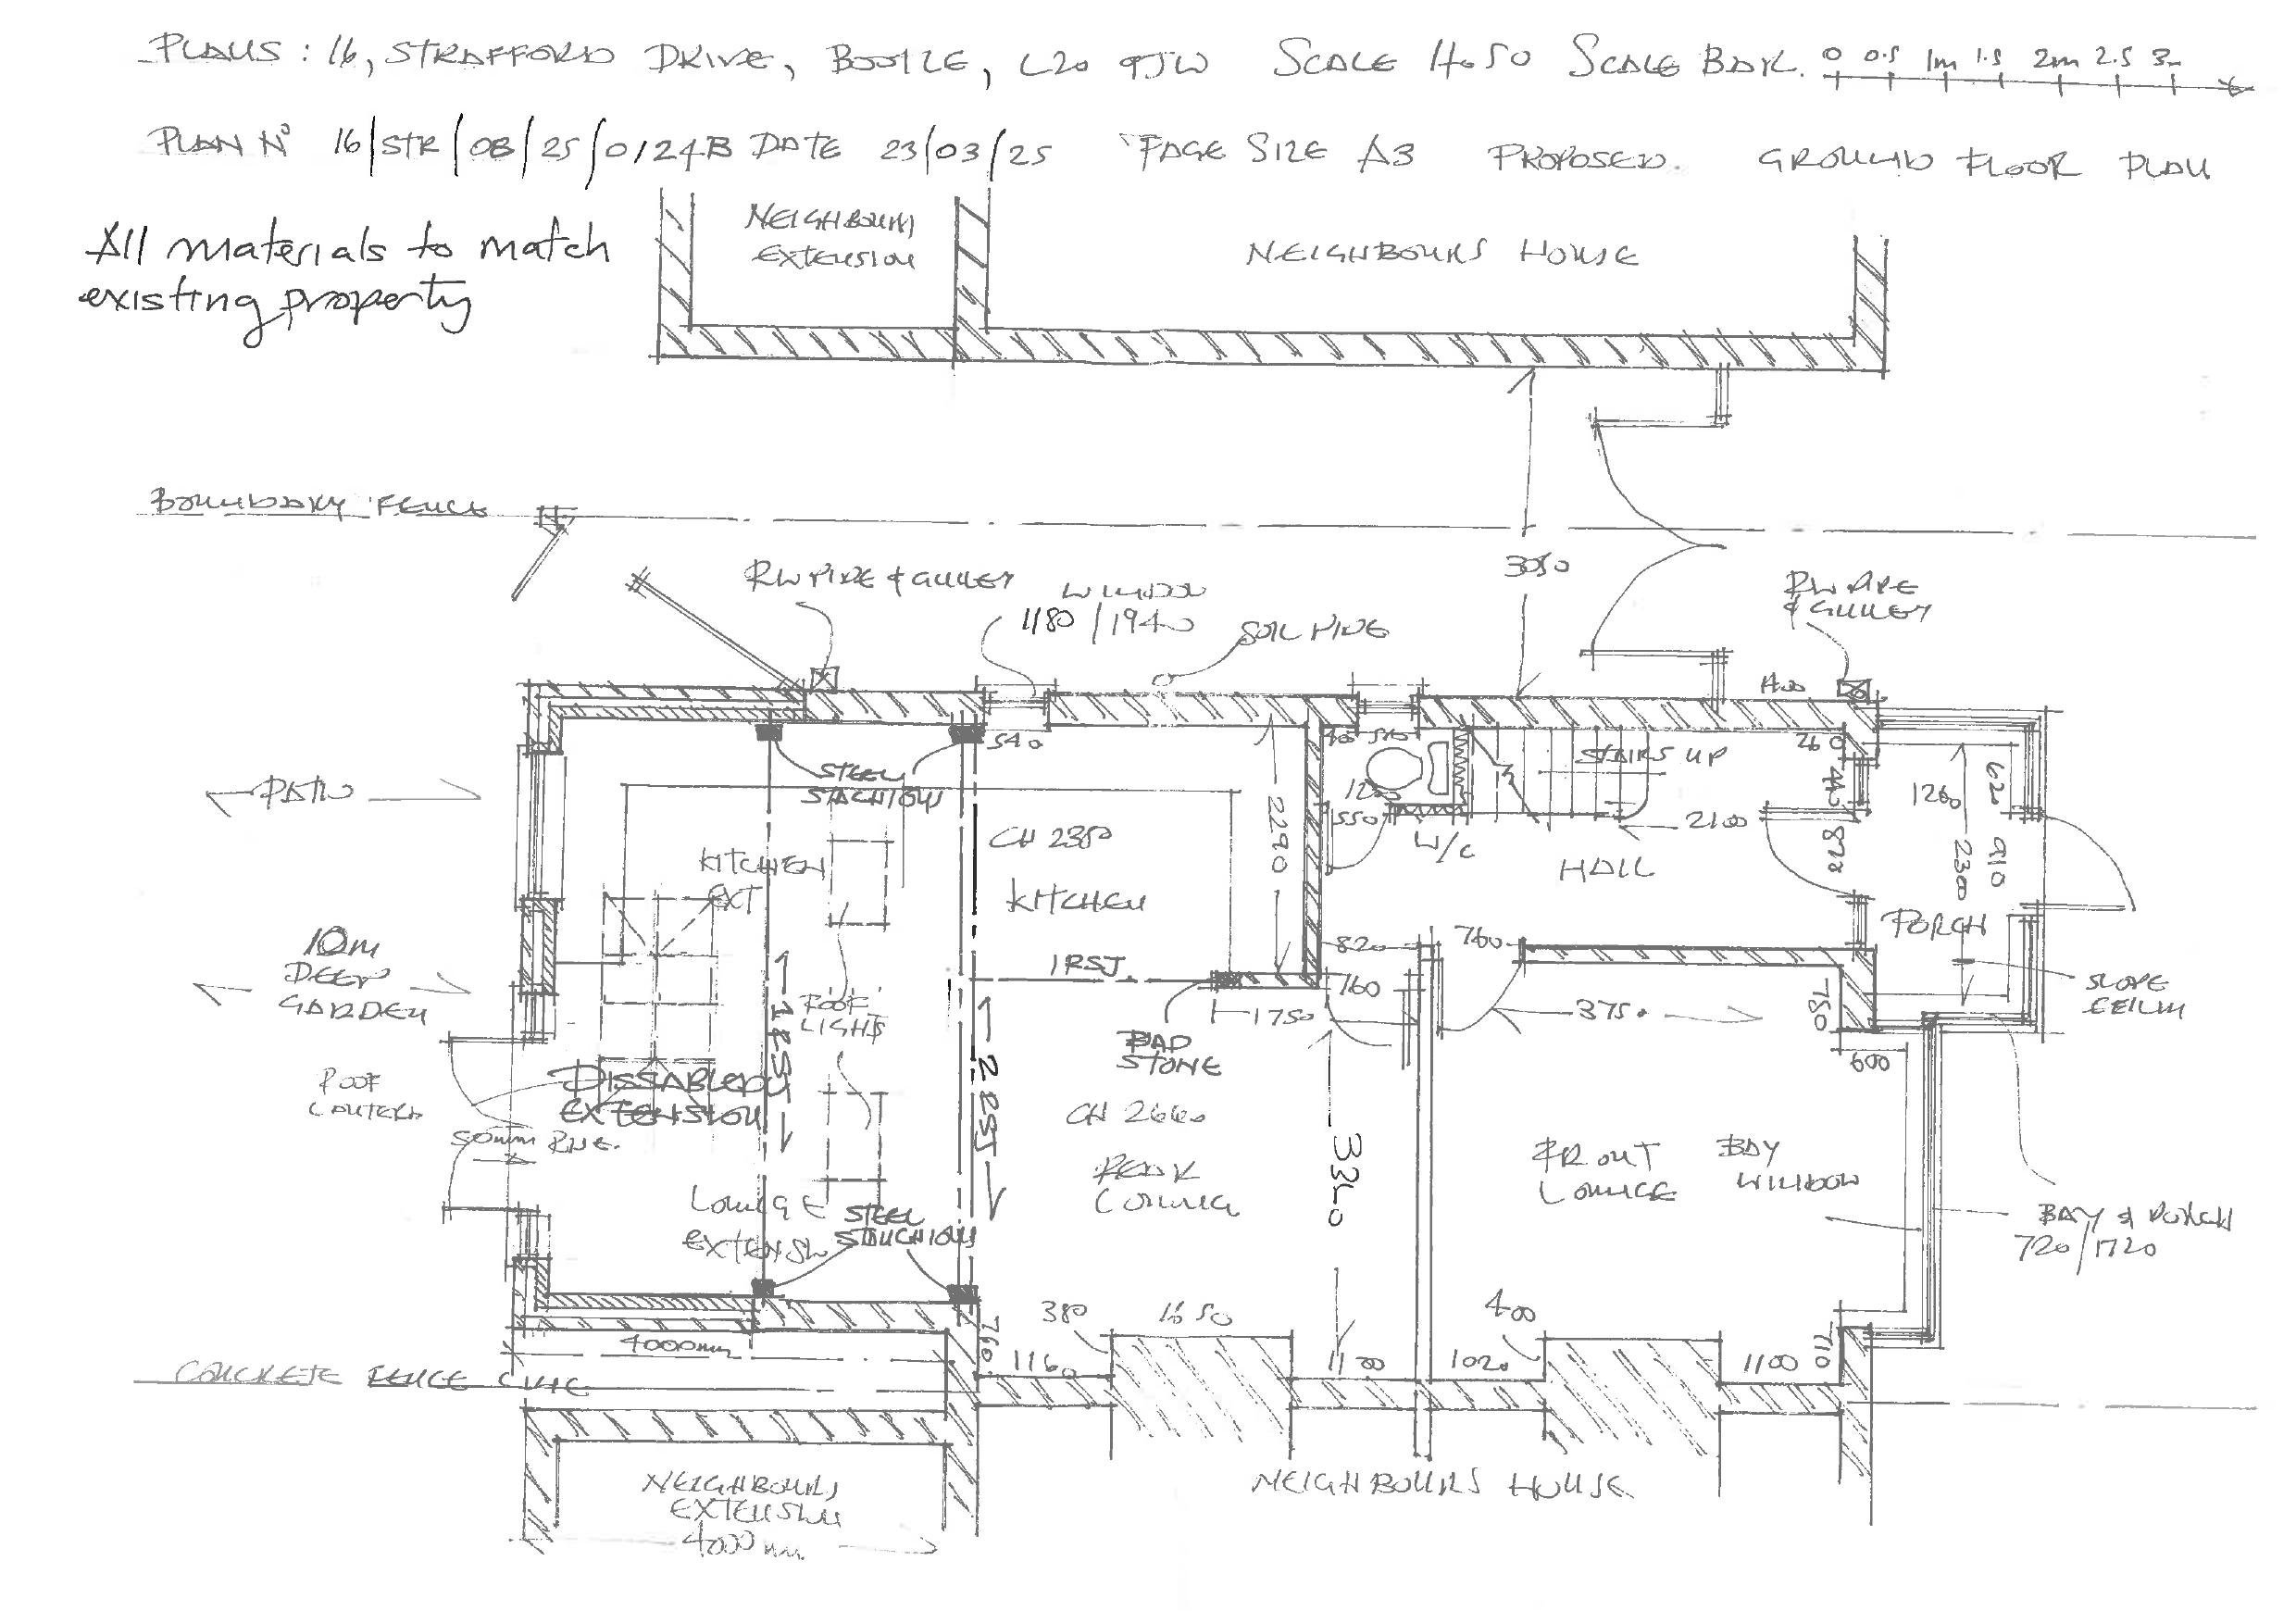 PLANS : 16, STRAFFORD DRIVE, BOOTLE, L20 9JW SCALE 1:50 SCALE BAR. 0 0.5 1m 1.5 2m 2.5 3m
PLAN Nº 16/STR/08/25/0124B DATE 23/03/25 PAGE SIZE A3 PROPOSED. GROUND FLOOR PLAN
All materials to match
existing property
NEIGHBOURS
EXTENSION
NEIGHBOURS HOUSE
BOUNDARY FENCE
RW PIPE & GULLEY
WINDOW
1180/1940
SOIL PIPE
3050
RW PIPE
& GULLEY
540
STEEL
STACHIONS
STAIRS UP
260
440
620
1260
PATIO
2290
1200
550
W/C
2100
HALL
878
910
2300
CH 2380
KITCHEN
KITCHEN
EXT
PORCH
10m
DEEP
GARDEN
1 RSJ.
820
760
760
SLOPE
CEILIN
ROOF
LIGHTS
1 RSJ
2 RSJ
1750
PAD
STONE
3750
780
600
ROOF
LANTERN
DISSABLED
EXTENSION
50mm RISE.
CH 2660
REAR
LOUNGE
3360
FRONT
LOUNGE
BAY
WINDOW
LOUNGE
EXTENSN
STEEL
STAUCHIONS
BAY & PORCH
720/1720
380
1650
400
4000mm
760
1160
1100
1020
1100
710
CONCRETE FENCE LINE
NEIGHBOURS
EXTENSION
4000mm
NEIGHBOURS HOUSE